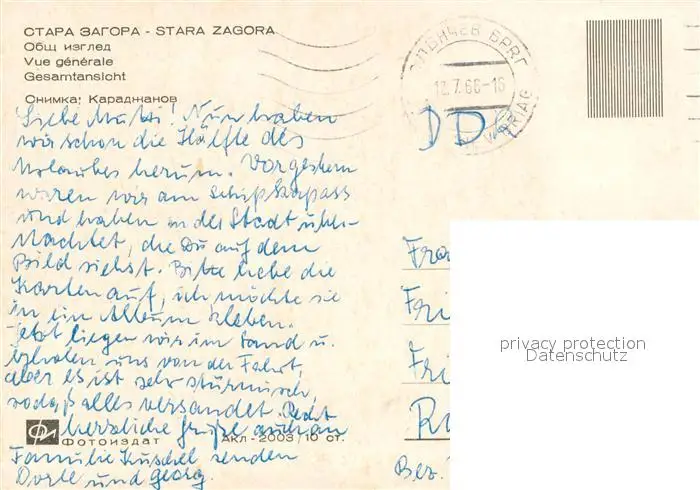 СТАРА ЗАГОРА - STARA ZAGORA
Общ изглед
Vue générale
Gesamtansicht
Снимка: Караджанов
Liebe Mutti! Nun haben
wir schon die Hälfte des
Urlaubes herum. Vorgestern
waren wir am Schipkapass
und haben in der Stadt über-
nachtet, die Du auf dem
Bild siehst. Bitte hebe die
Karten auf, ich möchte sie
in ein Album kleben.
Jetzt liegen wir im Sand u.
erholen uns von der Fahrt,
aber es ist sehr stürmisch,
sodaß alles versandet. Recht
herzliche Grüße auch an
Familie Kuschel senden
Dorle und Georg.
ФОТОИЗДАТ
АКЛ-2003/10 ст.
СЛЪНЧЕВ БРЯГ
12.7.66-16
BRIAG
DDR
Fra
Fri
Fri
R
Bez.
privacy protection
Datenschutz